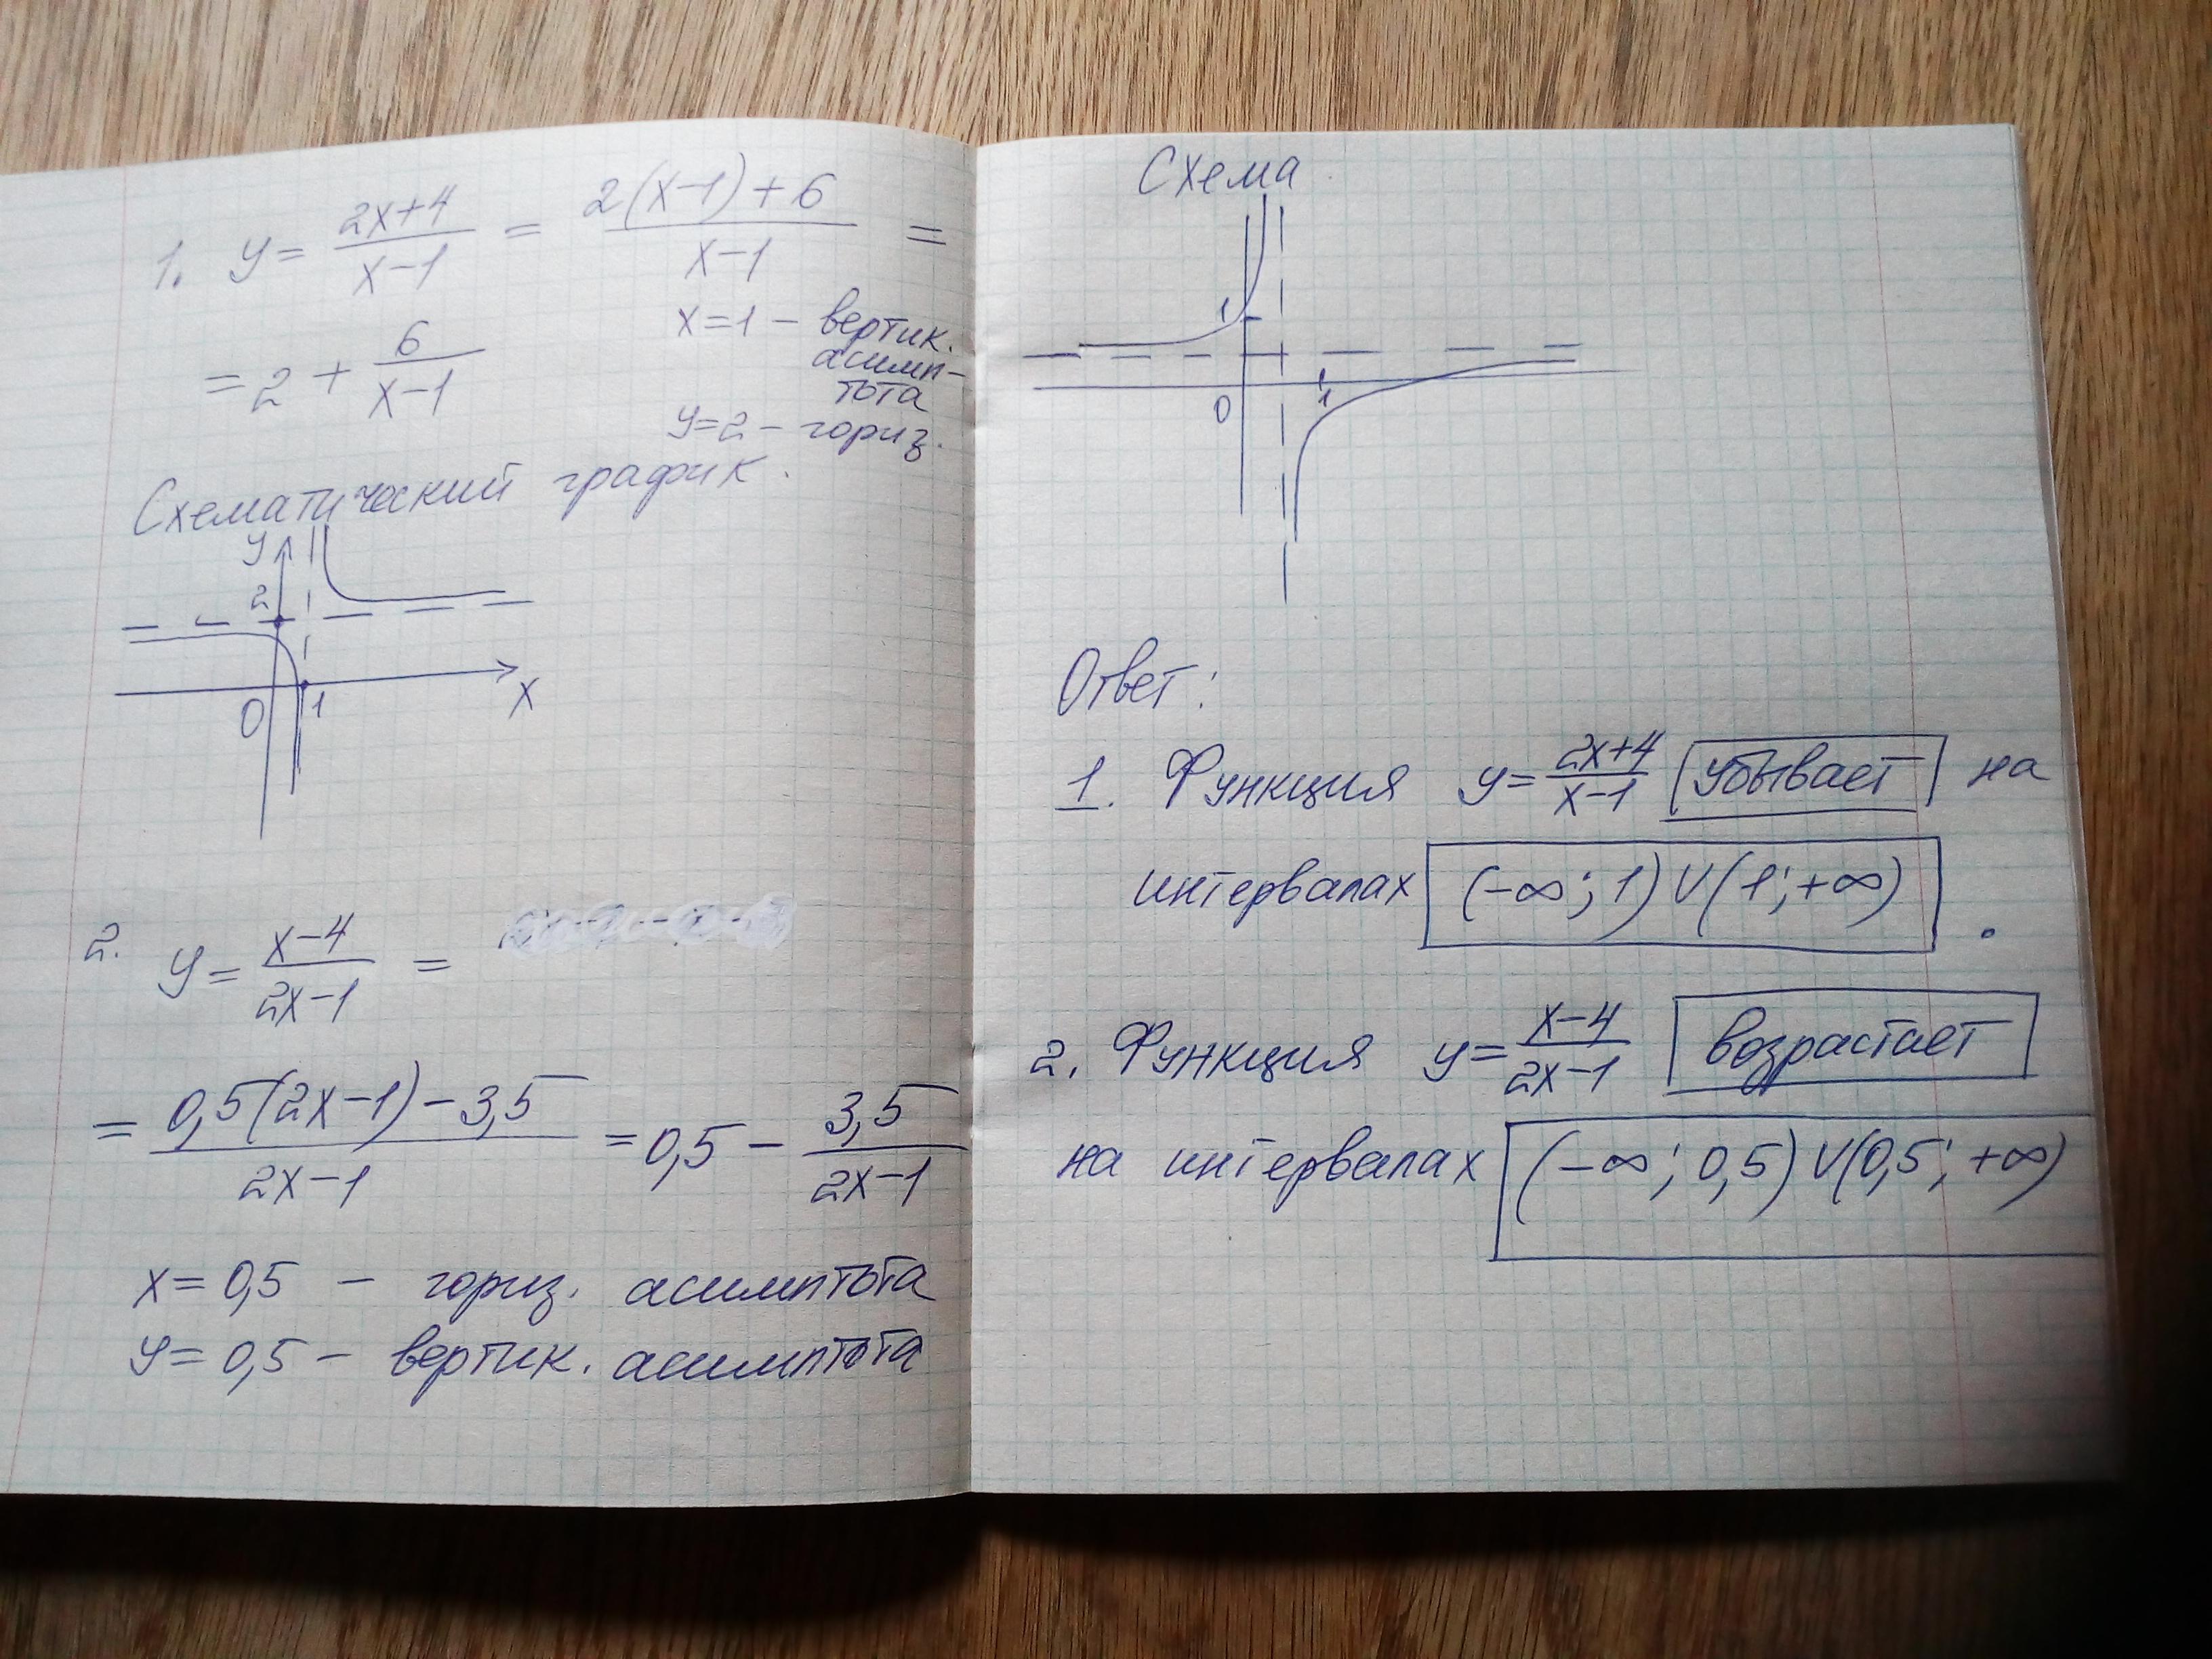 1. y = 2x+4 / x-1 = 2(x-1)+6 / x-1 =
= 2 + 6 / x-1
x=1 - вертик.
асимп-
тота
y=2 - гориз.
Схематический график.
y
2
0
1
x
2. y = x-4 / 2x-1 =
= 0,5(2x-1)-3,5 / 2x-1 = 0,5 - 3,5 / 2x-1
x = 0,5 - гориз. асимптота
y = 0,5 - вертик. асимптота
Схема
1
0
1
Ответ:
1. Функция y = 2x+4 / x-1 убывает на
интервалах (-∞; 1) ∪ (1; +∞).
2. Функция y = x-4 / 2x-1 возрастает
на интервалах (-∞; 0,5) ∪ (0,5; +∞)